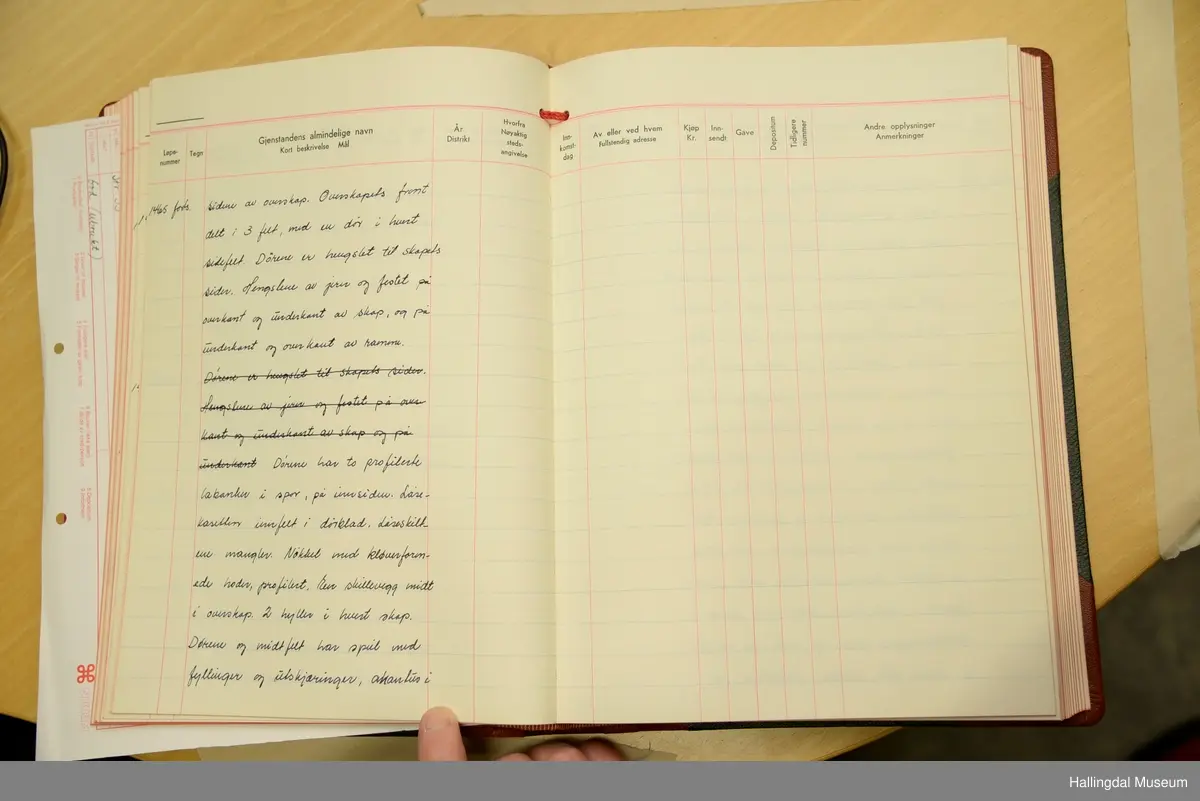 Løpe-
nummer
Tegn
Gjenstandens almindelige navn
Kort beskrivelse Mål
År
Distrikt
Hvorfra
Nøyaktig
steds-
angivelse
Inn-
komst-
dag
Av eller ved hvem
Fullstendig adresse
Kjøp
Kr.
Inn-
sendt
Gave
Depositum
Tidligere
nummer
Andre opplysninger
Anmerkninger
1465 forts. sidene av overskap. Overskapets front
delt i 3 felt, med en dör i hvert
sidefelt. Dörene er hengslet til skapets
sider. Hengslene av jern og festet på
overkant og underkant av skap, og på
underkant og overkant av ramme.
Dörene er hengslet til skapets sider.
Hengslene av jern og festet på over
kant og underkant av skap og på
underkant Dörene har to profilerte
labanker i spor, på innsiden. Låse-
kassetten innfelt i dörblad. Låseskilt-
ene mangler. Nökkel med klöverform-
ede hoder, profilert. Een skillevegg midt
i overskap. 2 hyller i hvert skap.
Dörene og midtfelt har speil med
fyllinger og utskjæringer, akantus i
Hallingdal Museum